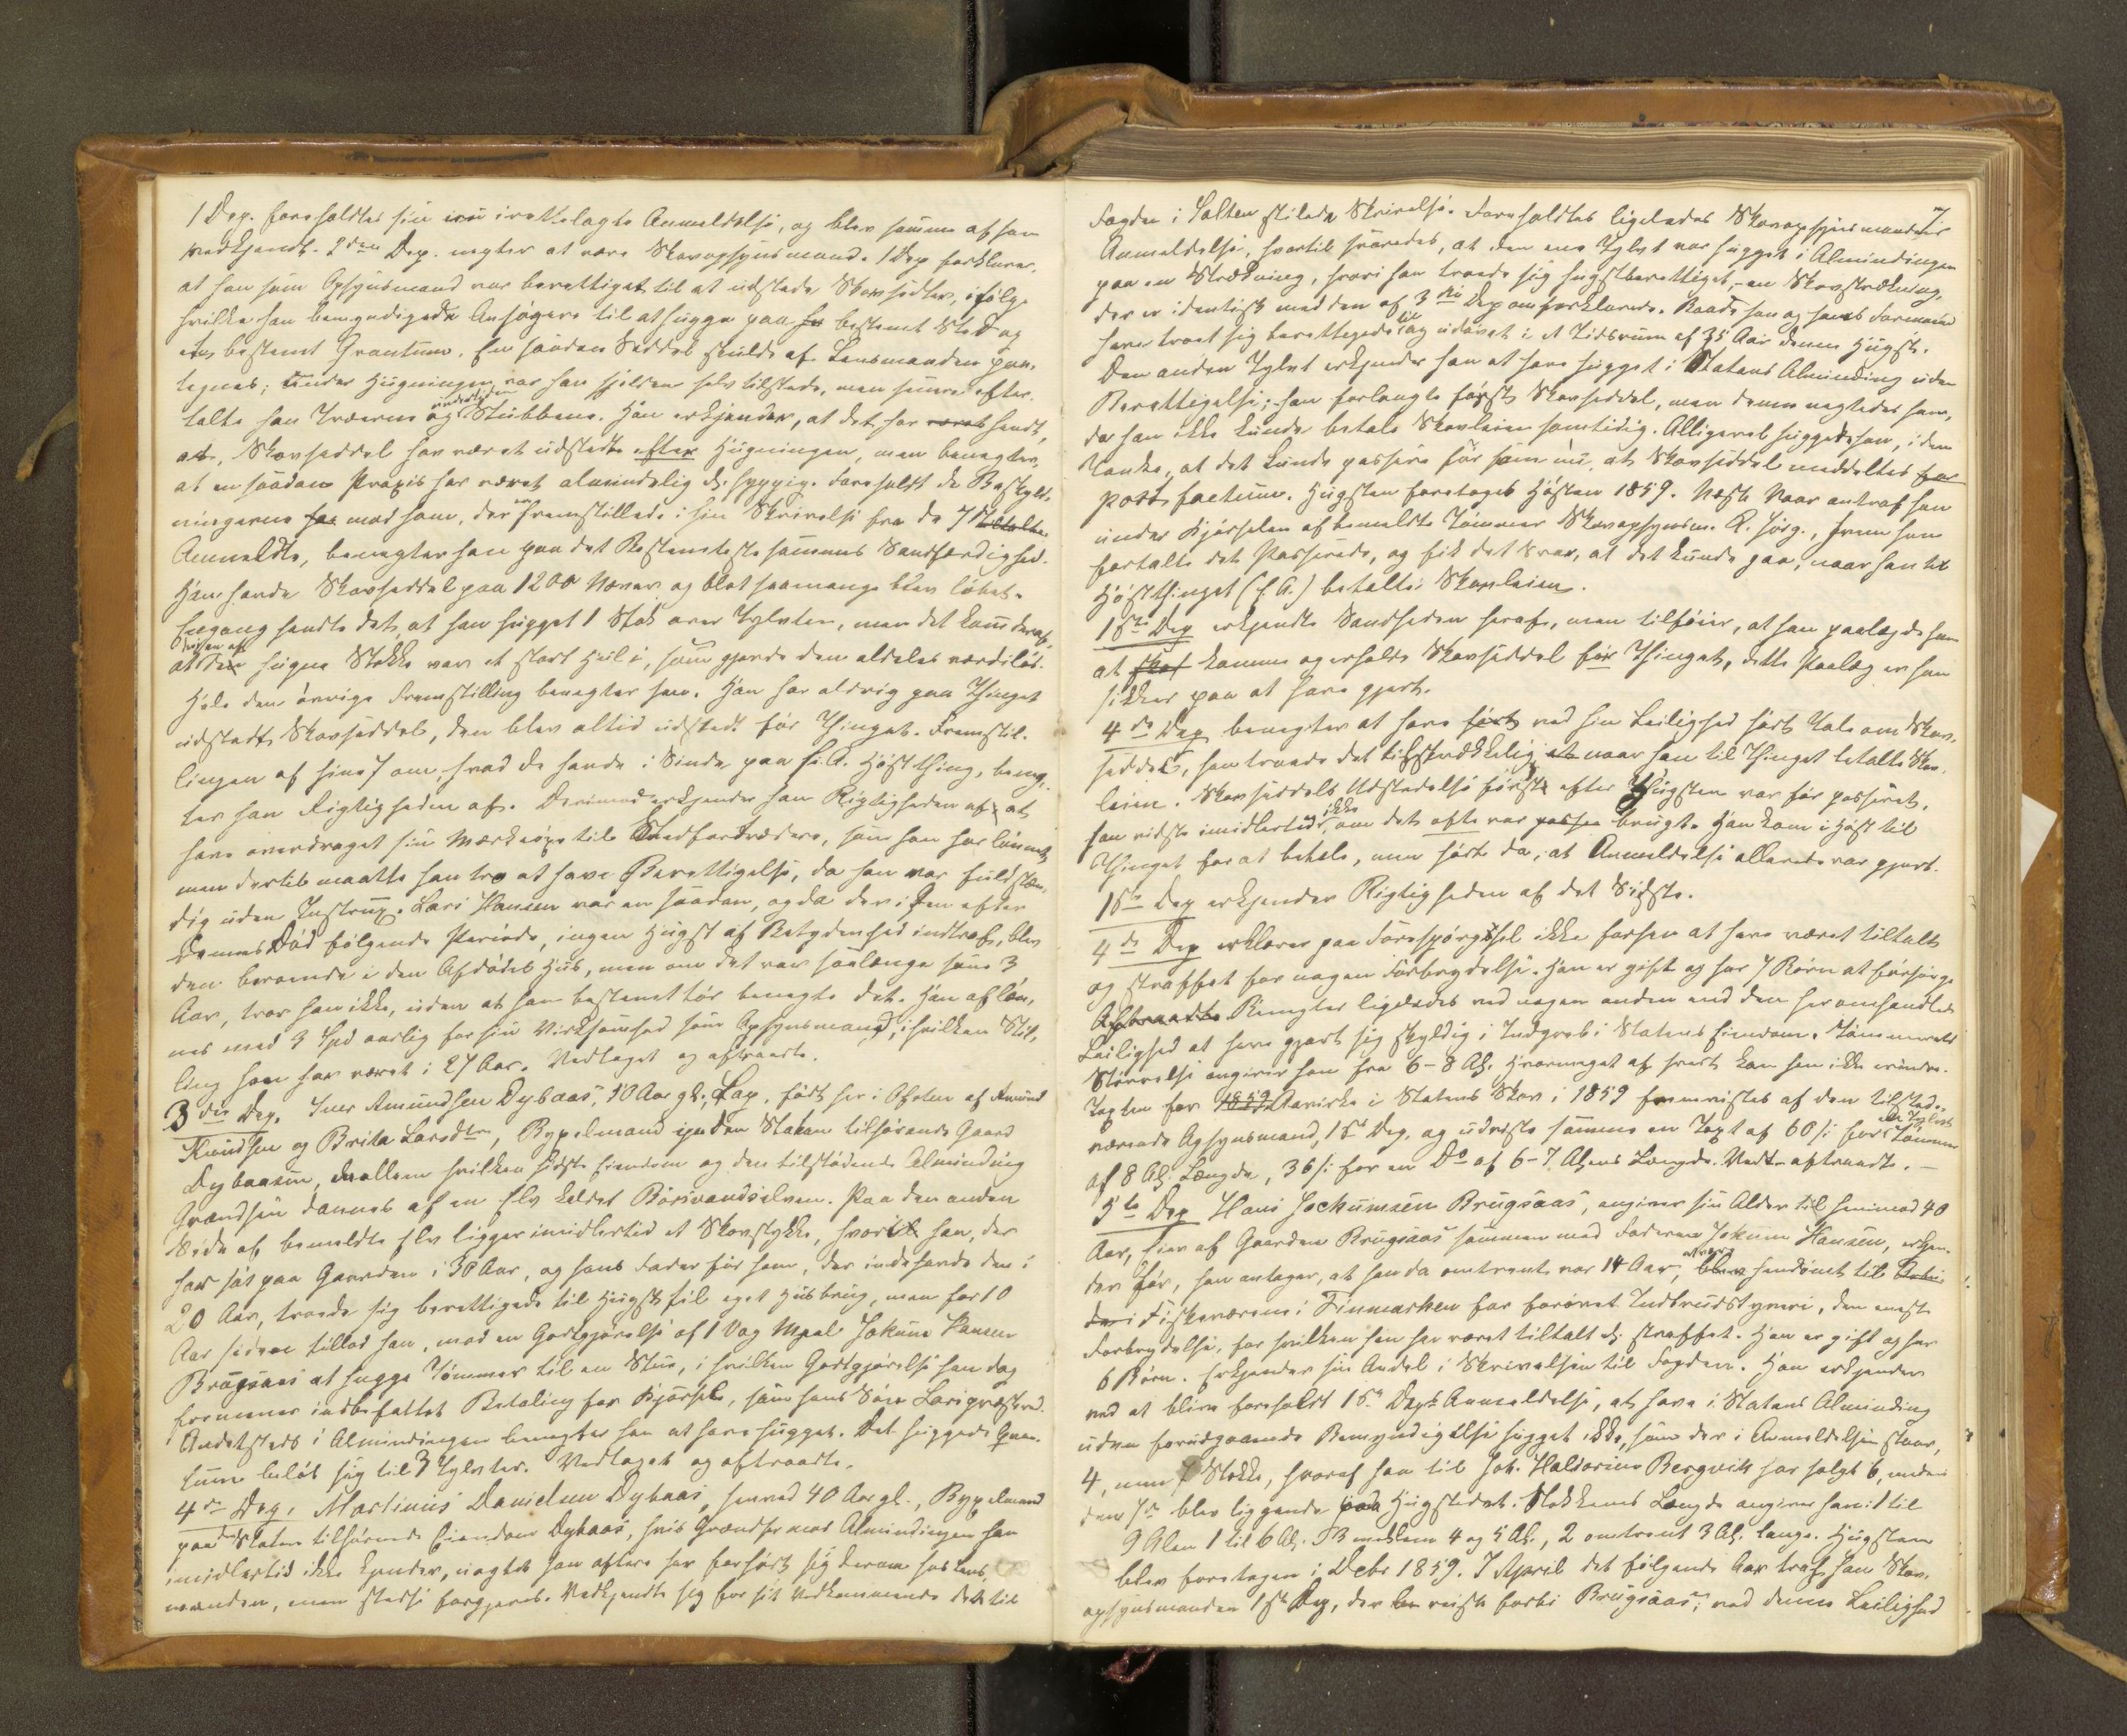 1 Dep. foreholdtes sin nu irettelagte Anmeldelse, og blev samme af ham
vedkjendt. 2den Dep. negter at være Skovopsynsmand. 1 Dep forklarer,
at han som Opsynsmand var berettiget til at udstede Skovsedler, ifølge
hvilke han bemyndigede Ansøgere til at hugge paa bestemt Sted og
et bestemt Qvantum. En saadan Seddel skulde af Lensmanden paa-
tegnes; under Hugningen var han sjelden selv tilstede, men senere efter-
talte han Træerne og undertiden Stubbene. Han erkjender, at det har været hendt,
at Skovseddel har været udstedt efter Hugningen, men benegter,
at en saadan Praxis har været almindelig d. hyppig. Foreholdt de Beskyld-
ningerne for mod ham, der er fremstillede i hin Skrivelse fra de 7
Anmeldte, benegter han paa det Bestemteste sammes Sandfærdighed.
Han havde Skovseddel paa 1200 Næver og blot saamange blev løbet.
Engang hendte det, at han hugget 1 Stok over Tylvten, men det kom deraf,
at den hugne Stokke var et stort Hul i, som gjorde den aldeles værdiløs.
Hele den øvrige Fremstilling benegter han. Han har aldrig paa Thinget
udstedt Skovseddel, den blev altid udstedt før Thinget. Fremstil-
lingen af hine 7 om, hvad de havde i Sinde paa f. A. Høstthing, beneg-
ter han Rigtigheden af. Derimod erkjender han Rigtigheden af at
have overdraget sin Mærkeøxe til Stedfortrædere, som han har lønnet,
men dertil maatte han tro at have Berettigelse, da han var fuldstæn-
dig uden Instrux. Lars Hansen var en saadan, og da der i den efter
Dennes Død følgende Periode, ingen Hugst af Betydenhed indtraf, blev
den beroende i den Afdødes Hus, men om det var saalænge som 3
Aar, tror han ikke, uden at han bestemt tør benegte det. Han afløn-
nes med 3 Spd aarlig for sin Virksomhed som Opsynsmand, i hvilken Stil-
ling han har været i 27 Aar. Vedtaget og aftraadte.
3die Dep. Iver Amundsen Dybaas, 50 Aar gl., Lap, født her i Ofoten af Amund
Knudsen og Brita Larsdtr, Bygselmand paa den Staten tilhørende Gaard
Dybaasen, mellem hvilken sidste Eiendom og den tilstødende Alminding
Grændsen dannes af en Elv kaldet Børsvandselven. Paa den anden
Side af bemeldte Elv ligger imidlertid et Skovstykke, hvortil han, der
har sat paa Gaarden i 30 Aar, og hans Fader før ham, der indehavde den i
20 Aar, troede sig berettigede til Hugst til eget Husbrug, men for 10
Aar siden tillod han, mod en Godtgjørelse af 1 Vog Meel Jokum Hansen
Brugsaas at hugge Tømmer til en Stue, i hvilken Godtgjørelse han dog
formener indbefattet Betaling for Kjørsel, som hans Søn Lars præsterede.
Andetsteds i Almindingen benegter han at have hugget. Det huggede Qvan-
tum beløb sig til 3 Tylvter. Vedtaget og aftraadte.
4de Dep, Martinus Danielsen Dybaas, henved 40 Aar gl., Bygselmand
paa den Staten tilhørende Eiendom Dybaas, hvis Grændse mod Almindingen han
imidlertid ikke kjender, uagtet han oftere har forhørt sig derom hos Lens-
manden, men stedse forgjæves. Vedkjendte sig for sit Vedkommende det til
7.
Fogden i Salten stilede Skrivelse. Foreholdtes ligeledes Skovopsynsmandens
Anmeldelse, hvortil svaredes, at den ene Tylvt var hugget i Almindingen
paa en Strækning, hvori han troede sig hugstberettiget, en Skovstrækning,
der er identisk med den af 3die Dep omforklarede. Baade han og hans Formand
have troet sig berettigede til og udøvet i et Tidsrum af 35 Aar denne Hugst.
Den anden Tylvt erkjender han at have hugget i Statens Alminding uden
Berettigelse; han forlangte først Skovseddel, men denne negtedes ham,
da han ikke kunde betale Skovleien samtidig. Alligevel huggede han, i den
Tanke, at det kunde passere før som nu, at Skovseddel meddeltes
post factum. Hugsten foretoges Høsten 1859. Næste Vaar antraf han
under Kjørselen af bemeldte Tømmer Skovopsynsm. A. Jørg., hvem han
fortalte det Passerede, og fik det Svar, at det kunde gaa, naar han til
Høstthinget (f. A.) betalte Skovleien.
1ste Dep erkjendte Sandheden heraf, men tilføier, at han paalagde ham
at skal komme og erholde Skovseddel før Thinget, dette Paalæg er han
sikker paa at have gjort.
4de Dep benegter at have hørt ved hin Leilighed hørt Tale om Skov-
seddel, han troede det tilstrækkelig at naar han til Thinget betalte Skov-
leien. Skovseddels Udstedelse først efter Hugsten var før passeret,
han vidste imidlertid ikke, om det ofte var passer brugt. Han kom i Høst til
Thinget for at betale, men hørte da, at Anmeldelse allerede var gjort.
1ste Dep erkjender Rigtigheden af det Sidste.
4de Dep erklærer paa Forespørgsel ikke forhen at have været tiltalt
og straffet for nogen Forbrydelse. Han er gift og har 7 Børn at forsørge
Aftraadte Benegter ligeledes ved nogen anden end den her omhandlede
Leilighed at have gjort sig skyldig i Indgreb i Statens Eiendom. Tømmerets
Størrelse angiver han fra 6–8 Al. Hvormeget af hvert kan han ikke erindre.
Taxten for 1859 Aavirke i Statens Skov i 1859 fremvistes af den tilstede-
værende Opsynsmand, 1ste Dep. og udviste samme en Taxt af 60 s. for en Tylvt Tømmer
af 8 Al. Længde, 36 s. for en Do af 6–7 Alens Længde. Vedt. aftraadte. —
5te Dep Hans Jochumsen Brugsaas, angiver sin Alder til henimod 40
Aar, Eier af Gaarden Brugsaas sammen med Faderen Jokum Hansen, erkjen-
der før, han antager, at han da omtrent var 14 Aar, at være blev handømt til
der i Fiskeværene i Finmarken for forøvet Indbrudstyveri, den eneste
Forbrydelse, for hvilken han har været tiltalt d. straffet. Han er gift og har
6 Børn. Erkjender sin Andel i Skrivelsen til Fogden. Han erkjender
ved at blive foreholdt 1ste Deps Anmeldelse, at have i Statens Alminding
uden forudgaaende Bemyndigelse hugget ikke, som der i Anmeldelsen staar,
4, men 7 Stokke, hvoraf han til Joh. Haldorsen Bergvik har solgt 6, medens
den 7de blev liggende paa Hugstedet. Stokkenes Længde angiver han: 1 til
9 Alen 1 til 6 Al. 3 mellem 4 og 5 Al., 2 omtrent 3 Al. lange. Hugsten
blev foretagen i Debr 1859. I April det følgende Aar traf han Skov-
opsynsmanden 1ste Dep, der reiste forbi Brugsaas; ved denne Leilighed